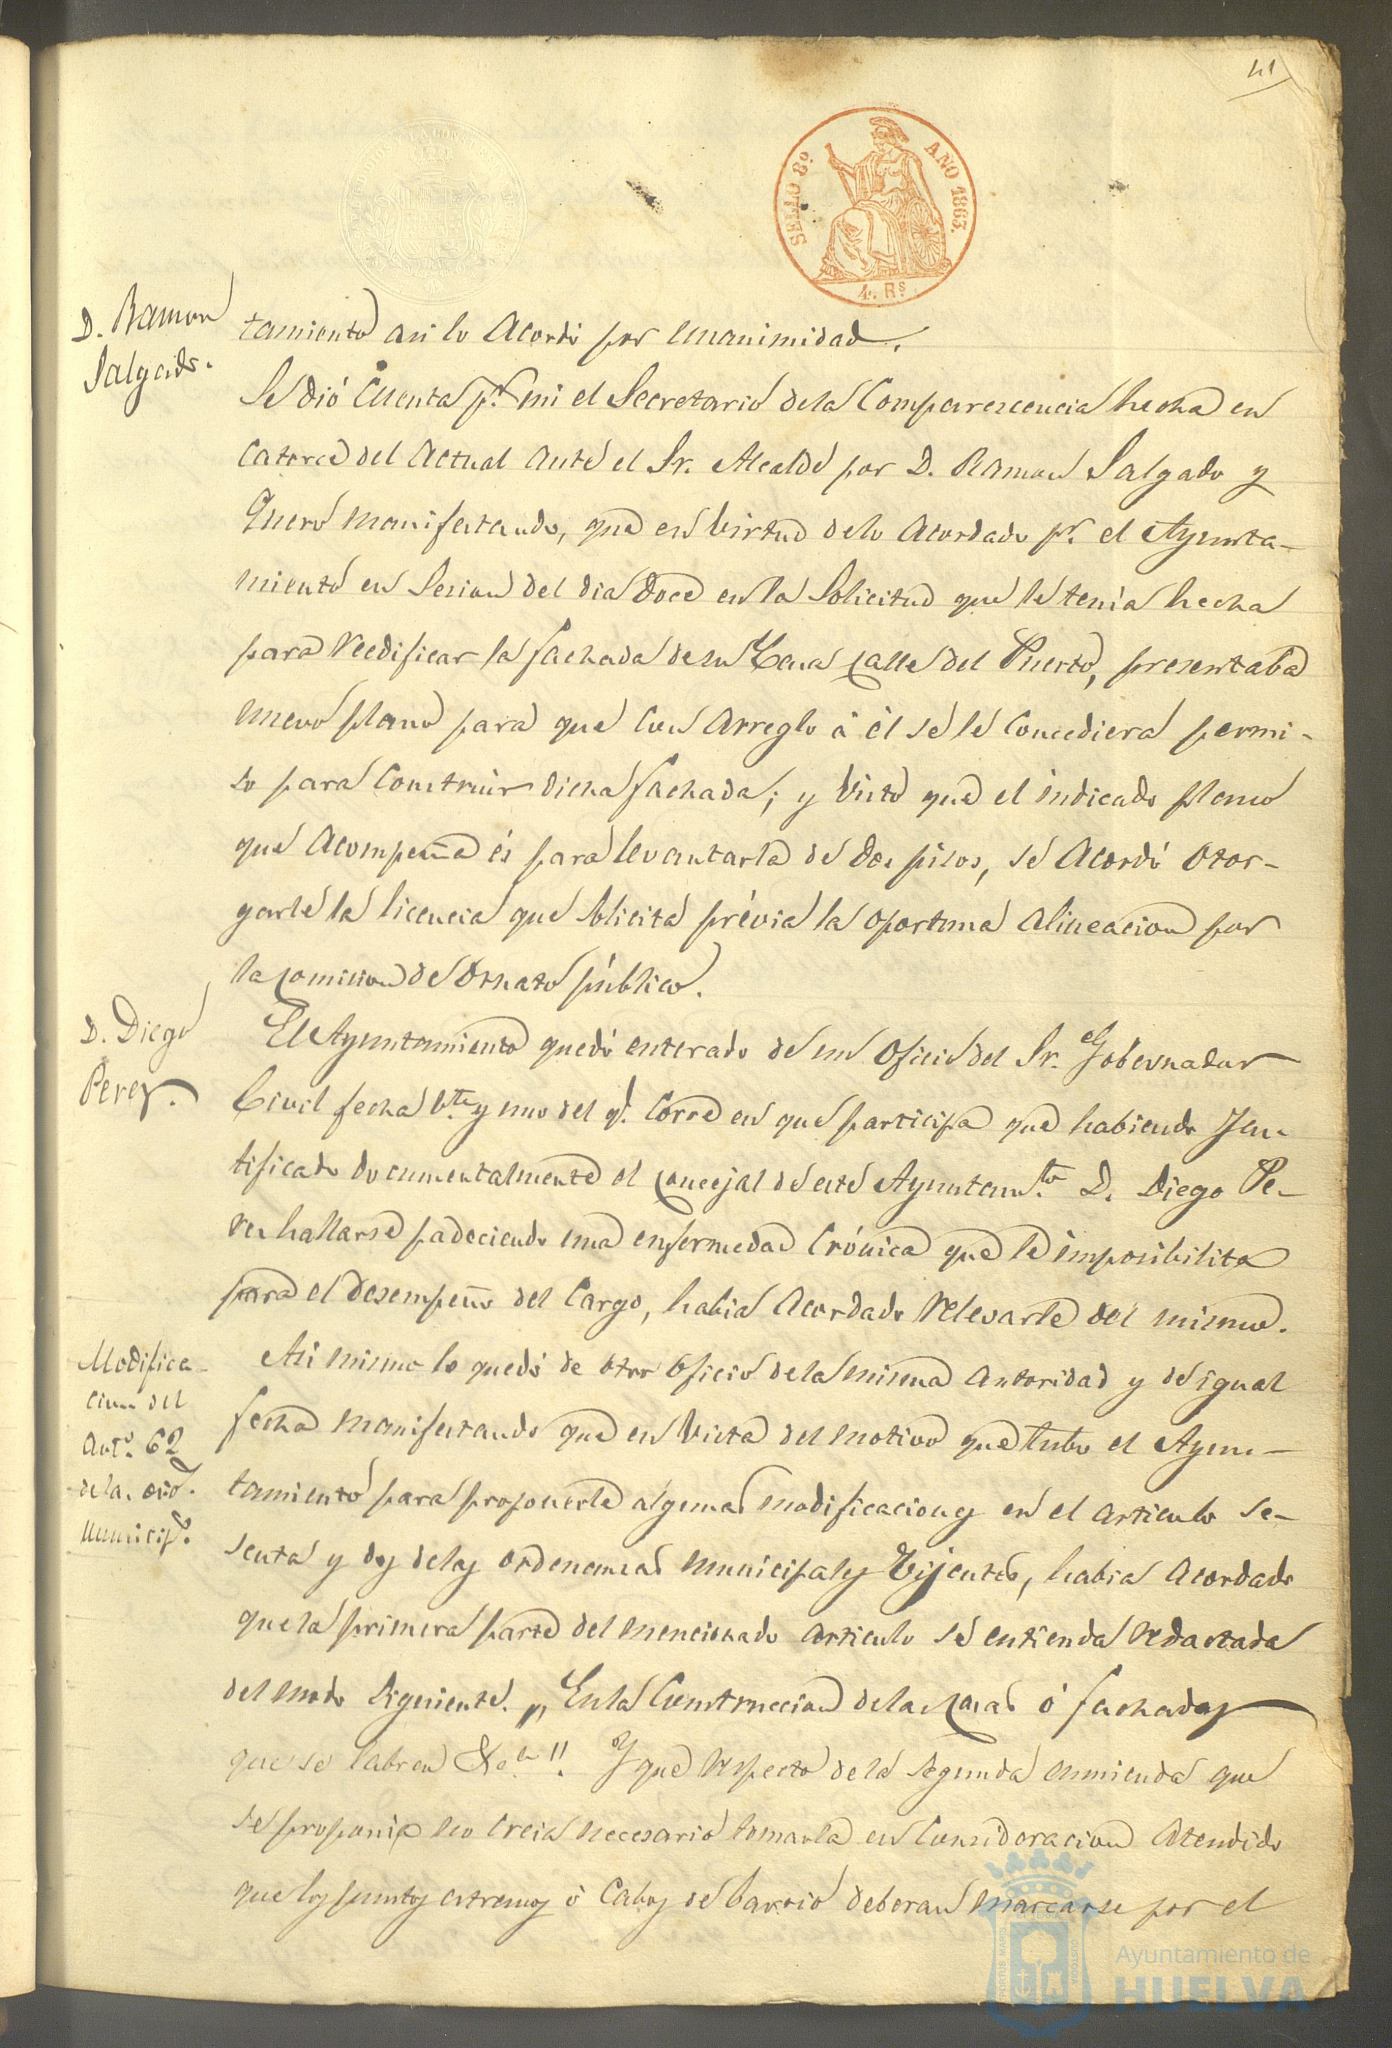 41
SELLO 8º AÑO 1863.
4. Rs
D. Ramon
Salgado.
tamiento asi lo Acordó por unanimidad.
Se dió Cuenta pr mi el Secretario de la Comparescencia hecha en
Catorce del Actual ante el Sr. Alcalde por D. Ramon Salgado y
Quero manifestando, que en virtud de lo Acordado pr. el Ayunta-
miento en Sesion del dia doce en la Solicitud que le tenia hecha
para reedificar la fachada de su Casa calle del Puerto, presentaba
nuevo plano para que con Arreglo á él se le Concediera permi-
so para Construir dicha fachada; y visto que el indicado plano
que Acompaña és para levantarla de dos pisos, se Acordó otor-
garle la licencia que solicita prévia la oportuna alineacion por
la comision de Ornato público.
D. Diego
Perez.
El Ayuntamiento quedó enterado de un oficio del Sr. Gobernador
Civil fecha vte. y uno del q. Corre en que participa que habiendo Jus-
tificado documentalmente el concejal de este Ayuntamto. D. Diego Pe-
rez hallarse padeciendo una enfermedad Crónica que le imposibilita
para el desempeño del Cargo, habia Acordado relevarle del mismo.
Modifica-
cion del
Arto. 62
de la ord.
municip.
Asi mismo lo quedó de otro oficio de la misma Autoridad y de igual
fecha manifestando que en vista del motivo que tubo el Ayun-
tamiento para proponerle algunas modificaciones en el articulo se-
senta y dos de las ordenanzas municipales vijentes, habia Acordado
que la primera parte del mencionado articulo se entienda redactada
del modo siguiente. „ En la Construccion de las casas ó fachadas
que se labren &a. " Y que respecto de la segunda enmienda que
se proponia no creia necesario tomarla en Consideracion Atendido
que los puntos estremos ó Cabos de barrio deberan marcarse por el
Ayuntamiento de
HUELVA